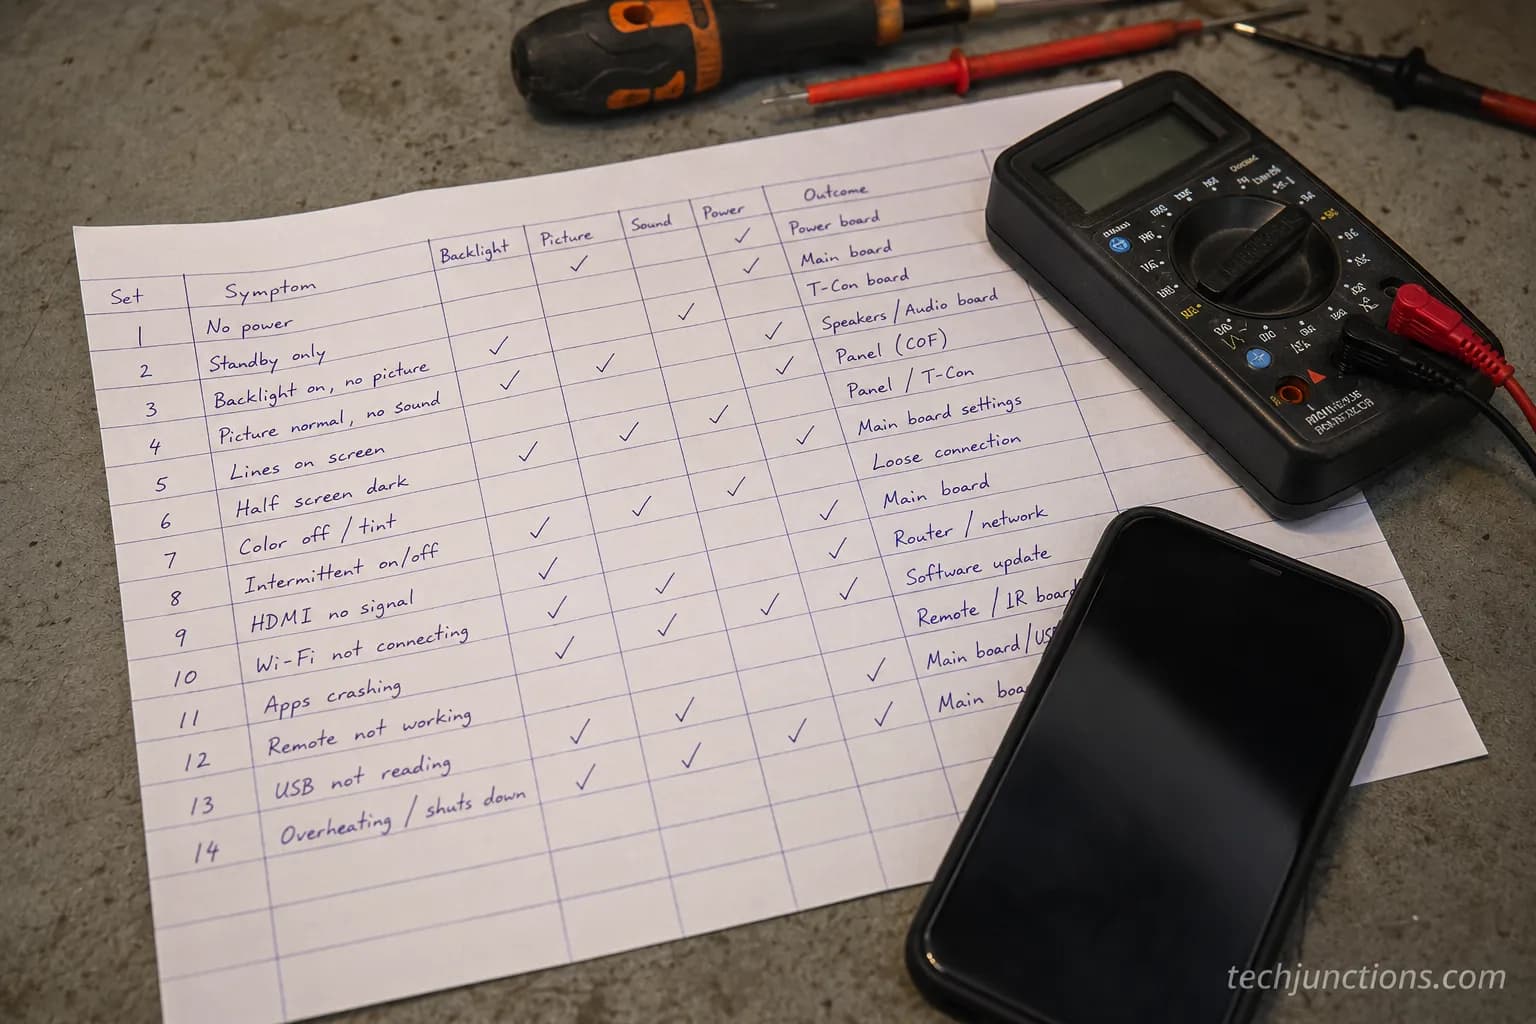 Set Symptom Backlight Picture Sound Power Outcome
1 No power ✓ ✓ Power board
2 Standby only ✓ Main board
3 Backlight on, no picture ✓ ✓ T-Con board
4 Picture normal, no sound ✓ ✓ ✓ Speakers / Audio board
5 Lines on screen ✓ Panel (COF)
6 Half screen dark ✓ ✓ ✓ Panel / T-Con
7 Color off / tint ✓ Main board settings
8 Intermittent on/off ✓ ✓ ✓ Loose connection
9 HDMI no signal ✓ ✓ Main board
10 Wi-Fi not connecting ✓ ✓ ✓ Router / network
11 Apps crashing ✓ ✓ ✓ ✓ Software update
12 Remote not working Remote / IR board
13 USB not reading ✓ ✓ ✓ Main board/US
14 Overheating / shuts down ✓ ✓ ✓ ✓ Main boa
techjunctions.com